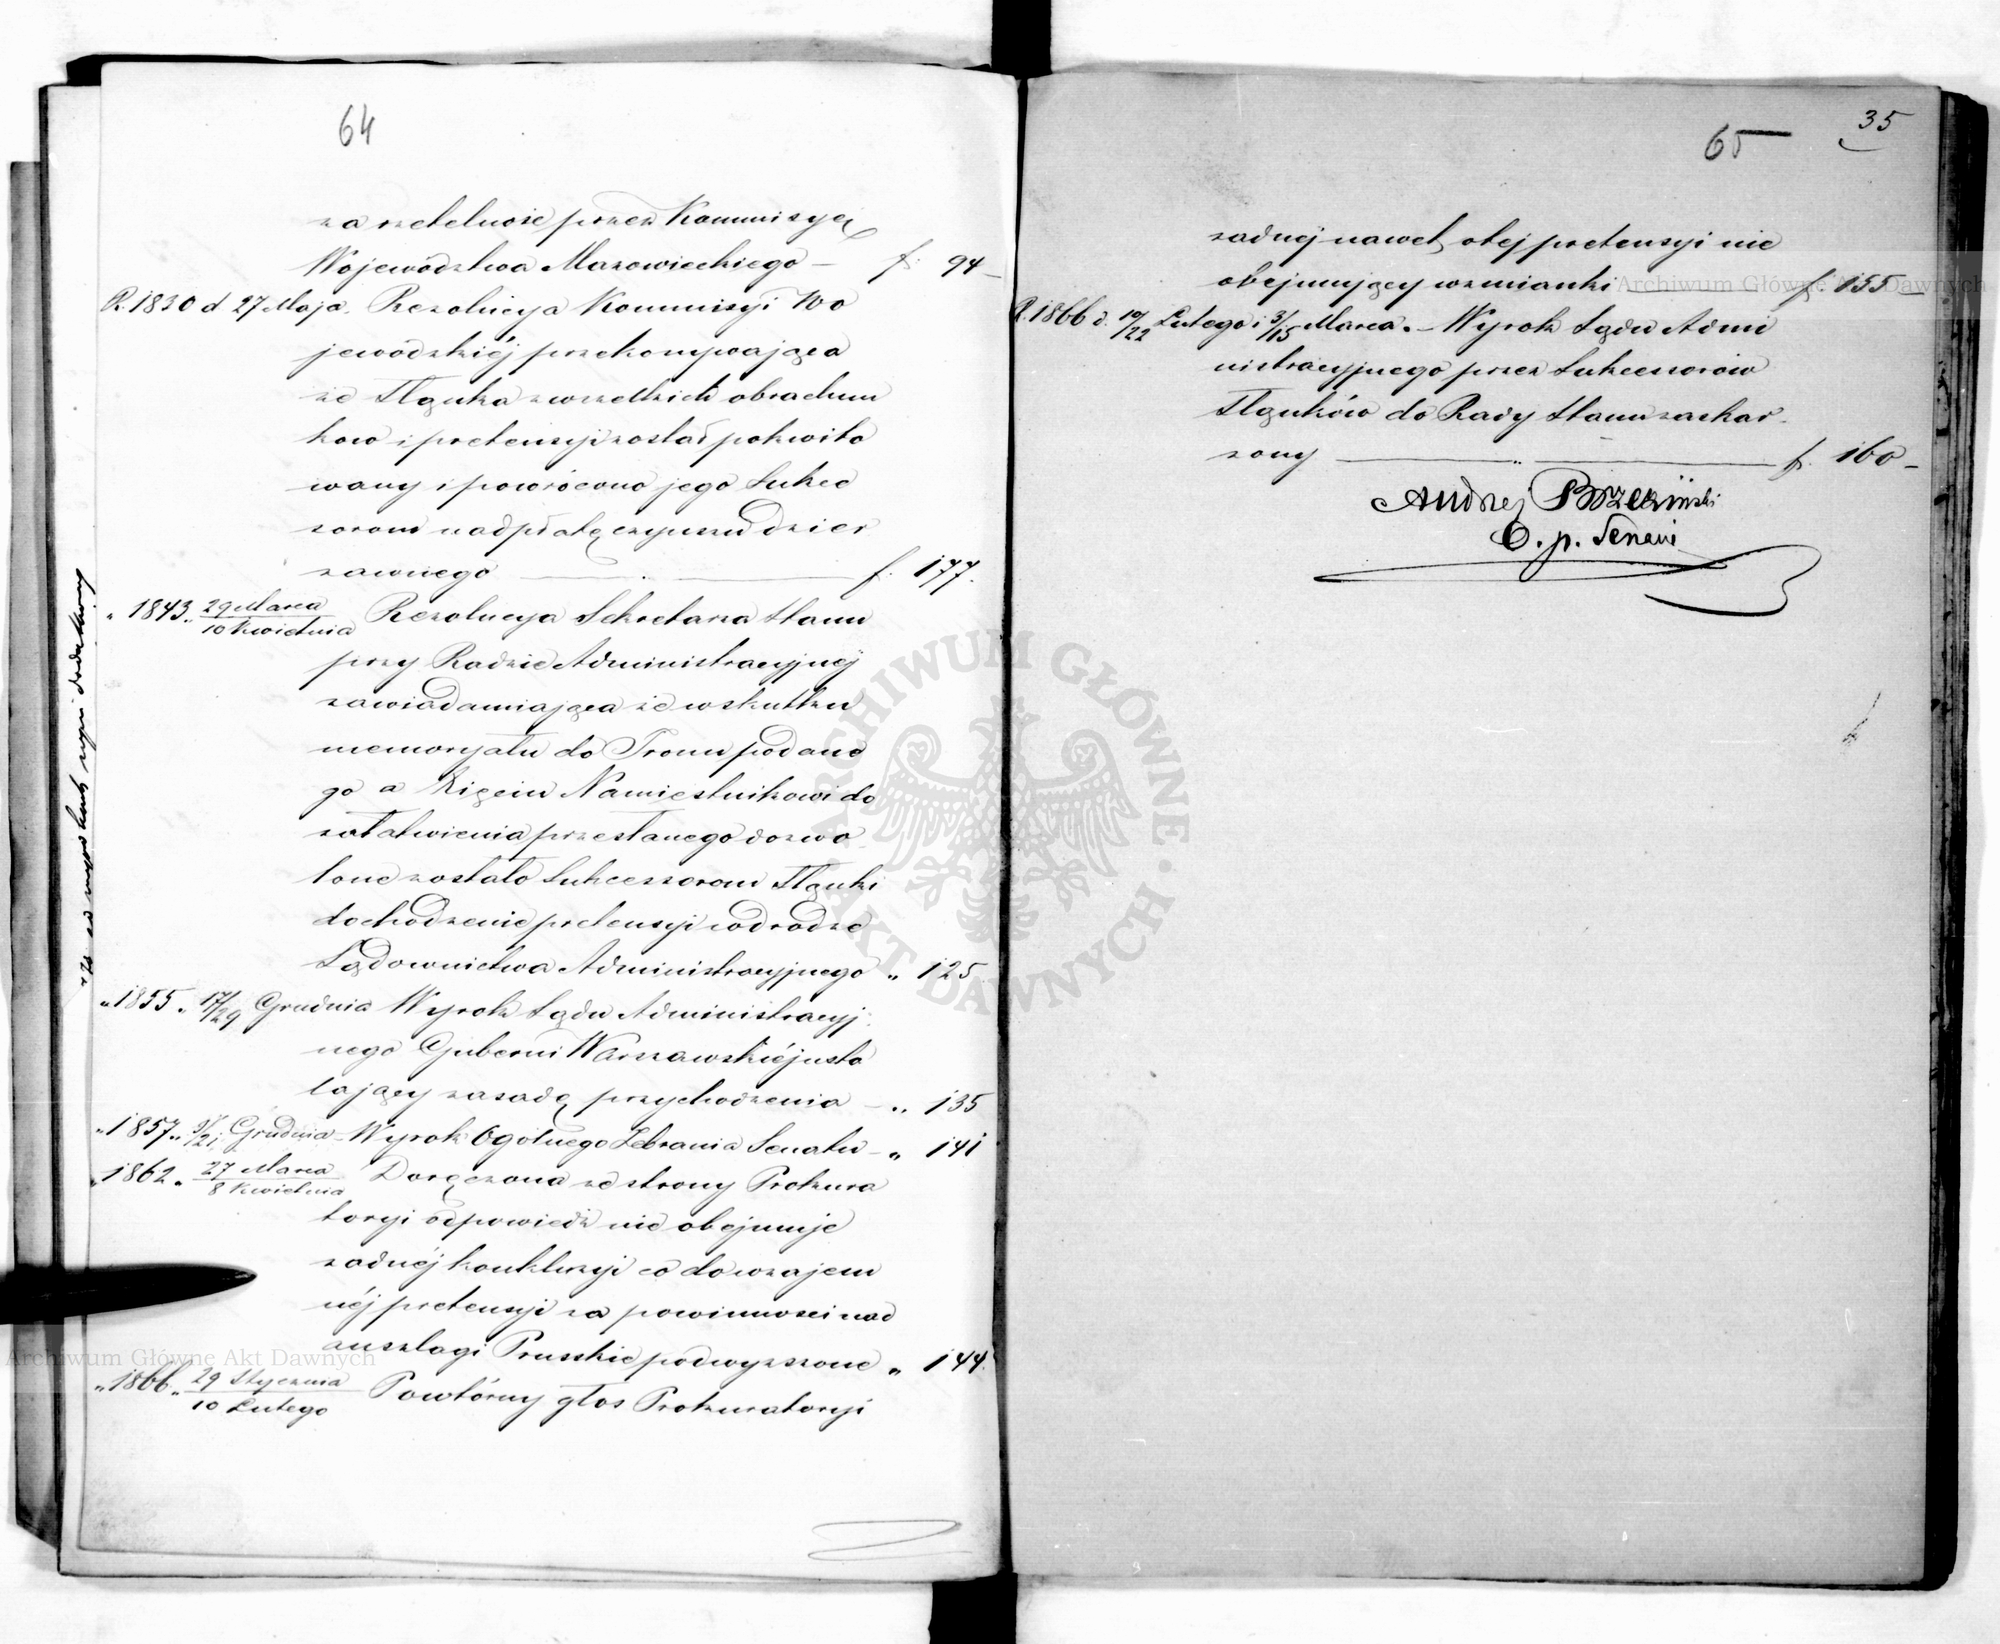 64
za rzetelność przez Kommisyę
Województwa Mazowieckiego — f. 94 —
R. 1830 d 27 Maja. Rezolucya Kommisyi Wo
jewódzkiéj przekonywająca
że Stąnka z wszelkich obrachun
ków i pretensyi został pokwito
wany i powrócono jego Sukce
sorom nadpłatę czynszu dzier
żawnego — . — f. 177.
„ 1843 „ 29 Marca / 10 Kwietnia Rezolucya Sekretarza Stanu
przy Radzie Administracyjnéj
zawiadamiająca że w skutku
memoryału do Tronu podane
go a Xięciu Namiestnikowi do
załatwienia przesłanego dozwo
lone zostało Sukcessorom Stąnki
dochodzenie pretensyi w drodze
Sądownictwa Administracyjnego „ 125.
„ 1855 „ 17/29 Grudnia Wyrok Sądu Administracyj
nego Gubernii Warszawskiéj usta
lający zasadę przychodzenia — „ 135
„ 1857 „ 9/21 Grudnia — Wyrok Ogólnego Zebrania Senatu — „ 141
„ 1862 „ 27 Marca / 8 Kwietnia Doręczona ze strony Prokura
toryi odpowiedź nie obejmuje
żadnéj konkluzyi co do wzajem
néj pretensyi za powinności nad
anszlagi Pruskie podwyższone „ 144.
„ 1866 „ 29 Stycznia / 10 Lutego Powtórny głos Prokuratoryi
65 35
żadnéj nawet o téj pretensyi nie
obejmujący wzmianki — f. 155 —
R. 1866 d. 10/22 Lutego i 3/15 Marca. — Wyrok Sądu Admi
nistracyjnego przez Sukcessorów
Stąnków do Rady Stanu zaskar
żony — „ — f. 160 —
Andrzej Brzeziński
O. p. Senacie
ARCHIWUM GŁÓWNE AKT DAWNYCH
Archiwum Główne Akt Dawnych
Archiwum Główne Akt Dawnych